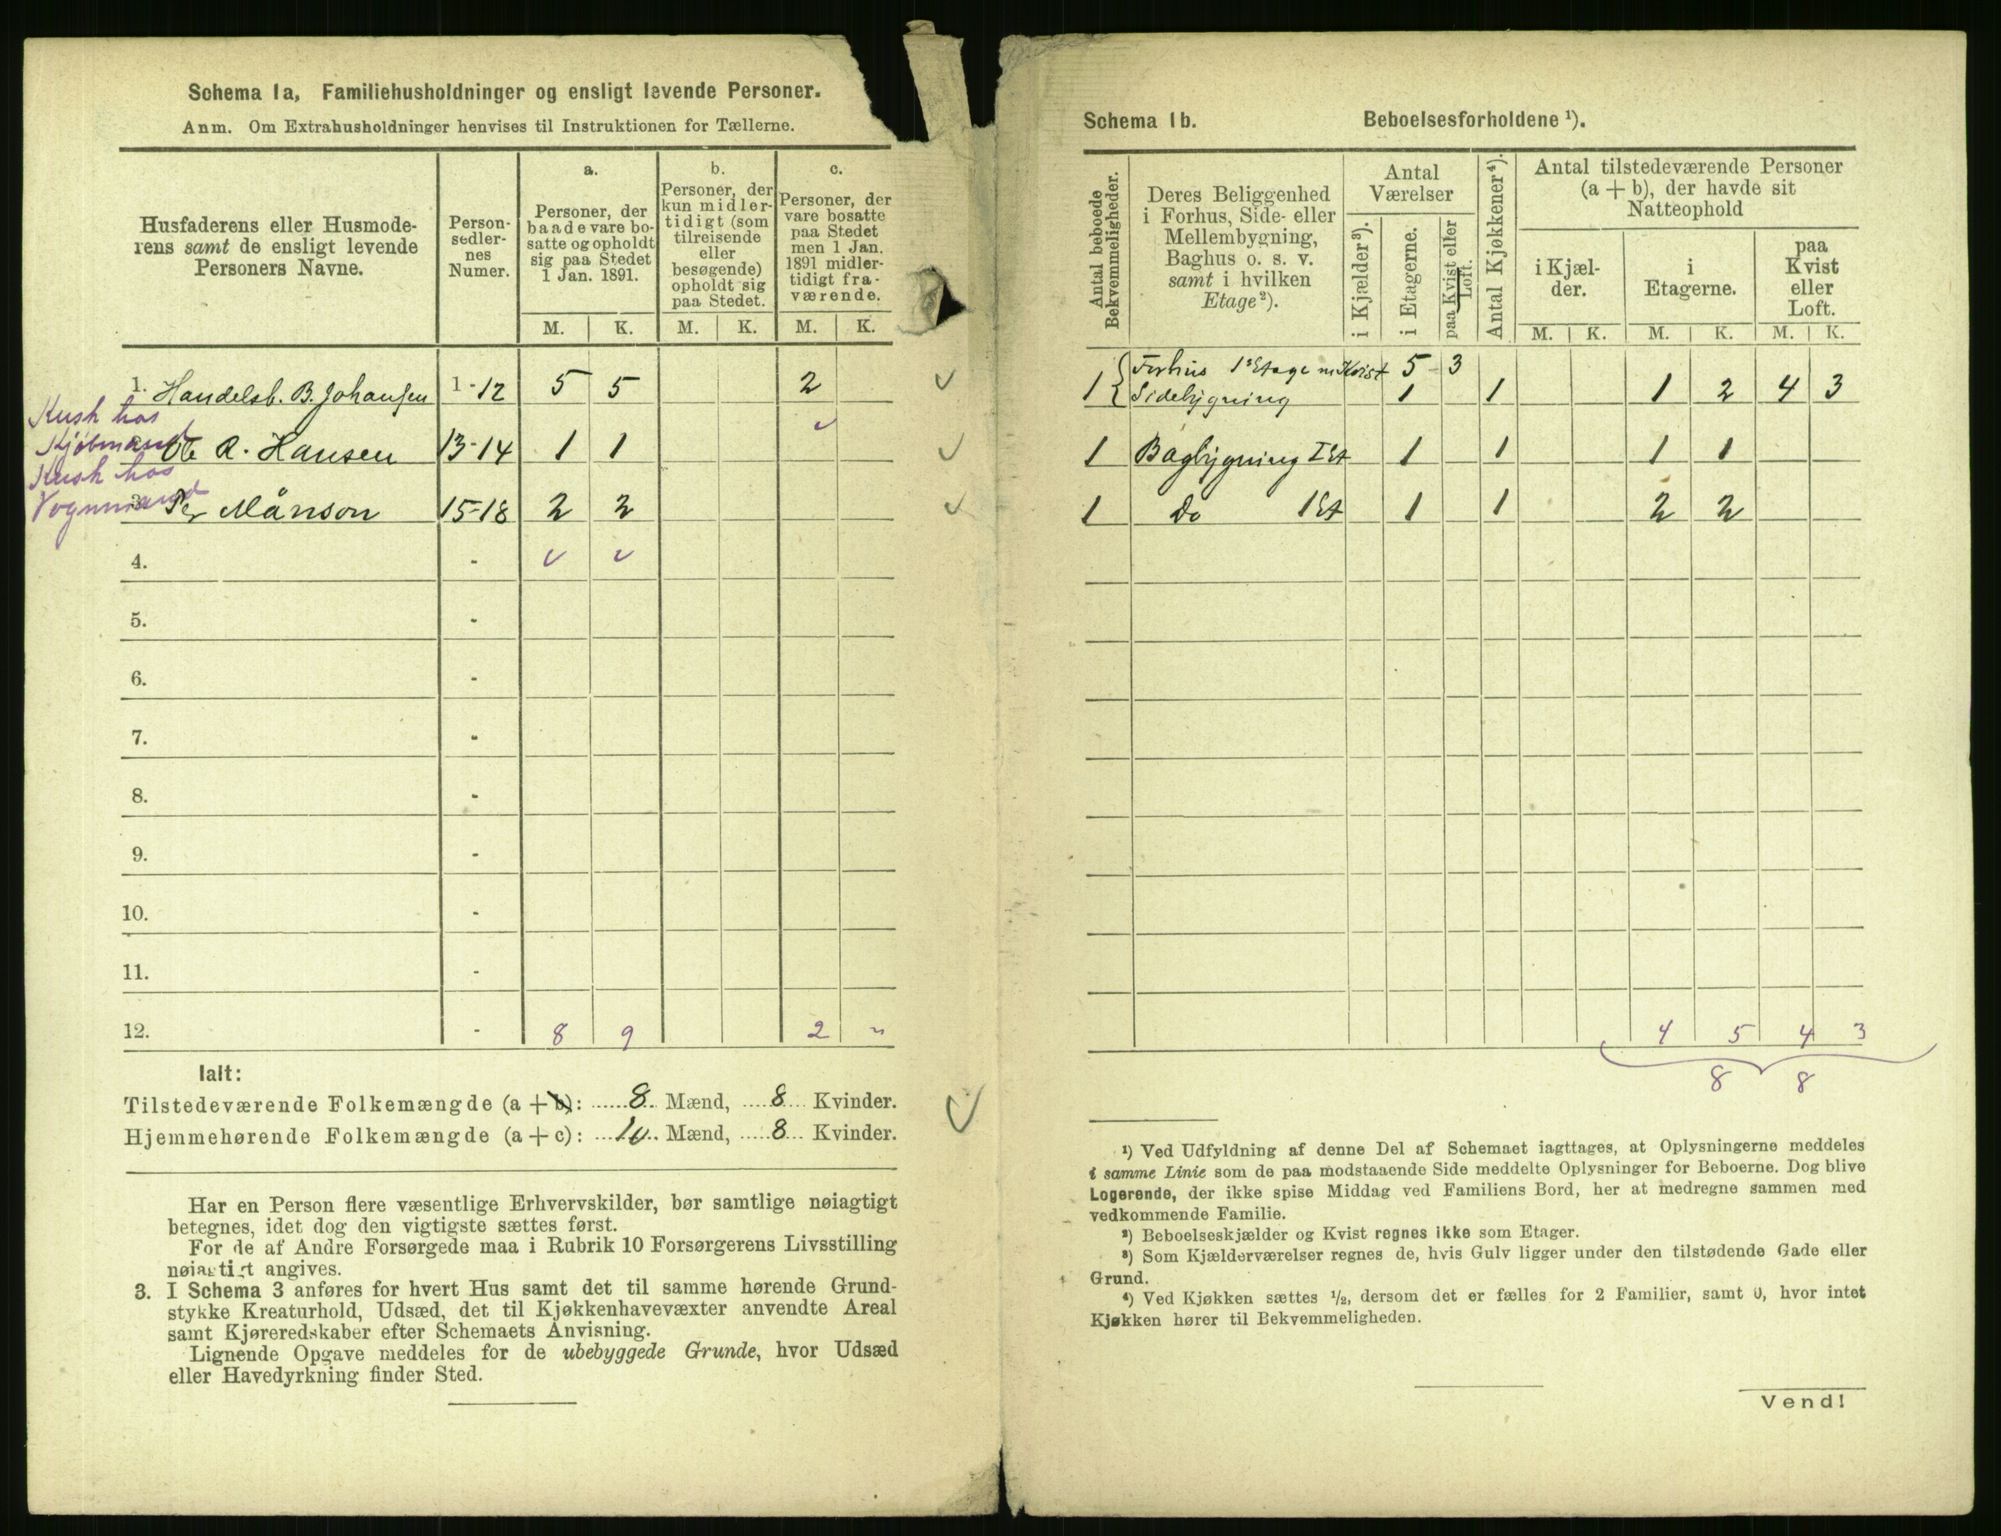 Schema 1a, Familiehusholdninger og ensligt levende Personer.
Anm. Om Extrahusholdninger henvises til Instruktionen for Tællerne.
Husfaderens eller Husmode-
rens samt de ensligt levende
Personers Navne.
Person-
sedler-
nes
Numer.
a.
Personer, der
baade vare bo-
satte og opholdt
sig paa Stedet
1 Jan. 1891.
b.
Personer, der
kun midler-
tidigt (som
tilreisende
eller
besøgende)
opholdt sig
paa Stedet.
c.
Personer, der
vare bosatte
paa Stedet
men 1 Jan.
1891 midler-
tidigt fra-
værende.
M. K. M. K. M. K.
1. Handelsb. B. Johansen 1-12 5 5 2
Kusk hos
Kjøbmand
Ole R. Hansen 13-14 1 1
Kusk hos
Vognmand
3. Per Månson 15-18 2 2
4. -
5. -
6. -
7. -
8. -
9. -
10. -
11. -
12. - 8 9 2 "
Ialt:
Tilstedeværende Folkemængde (a + b): 8 Mænd, 8 Kvinder.
Hjemmehørende Folkemængde (a + c): 10 Mænd, 8 Kvinder.
Har en Person flere væsentlige Erhvervskilder, bør samtlige nøiagtigt
betegnes, idet dog den vigtigste sættes først.
For de af Andre Forsørgede maa i Rubrik 10 Forsørgerens Livsstilling
nøiagtigt angives.
3. I Schema 3 anføres for hvert Hus samt det til samme hørende Grund-
stykke Kreaturhold, Udsæd, det til Kjøkkenhavevæxter anvendte Areal
samt Kjøreredskaber efter Schemaets Anvisning.
Lignende Opgave meddeles for de ubebyggede Grunde, hvor Udsæd
eller Havedyrkning finder Sted.
Schema 1b. Beboelsesforholdene ¹).
Antal beboede
Bekvemmeligheder.
Deres Beliggenhed
i Forhus, Side- eller
Mellembygning,
Baghus o. s. v.
samt i hvilken
Etage²).
Antal
Værelser
i Kjælder³).
i Etagerne.
paa Kvist eller
Loft.
Antal Kjøkkener⁴).
Antal tilstedeværende Personer
(a + b), der havde sit
Natteophold
i Kjæl-
der.
i
Etagerne.
paa
Kvist
eller
Loft.
M. K. M. K. M. K.
Forhus 1ˢ Etage m Kvist 5 3
1 Sidebygning 1 1 1 2 4 3
1 Bagbygning I Et 1 1 1 1
1 Do 1 Et 1 1 2 2
4 5 4 3
8 8
¹) Ved Udfyldning af denne Del af Schemaet iagttages, at Oplysningerne meddeles
i samme Linie som de paa modstaaende Side meddelte Oplysninger for Beboerne. Dog blive
Logerende, der ikke spise Middag ved Familiens Bord, her at medregne sammen med
vedkommende Familie.
²) Beboelseskjælder og Kvist regnes ikke som Etager.
³) Som Kjælderværelser regnes de, hvis Gulv ligger under den tilstødende Gade eller
Grund.
⁴) Ved Kjøkken sættes ½, dersom det er fælles for 2 Familier, samt 0, hvor intet
Kjøkken hører til Bekvemmeligheden.
Vend!